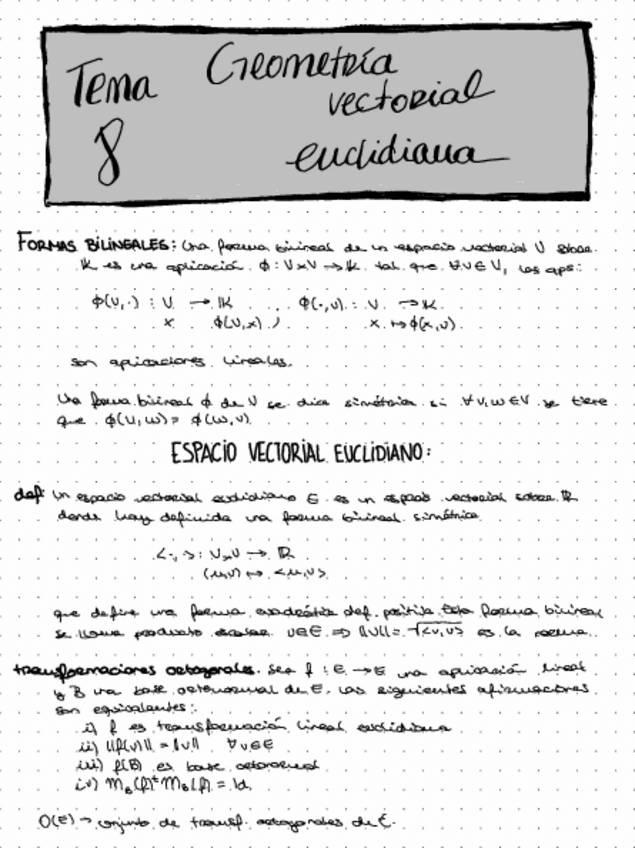 Tema 8 Geometría
vectorial
euclidiana
FORMAS BILINEALES: Una forma bilineal de un espacio vectorial V sobre
K es una aplicación φ: V×V → K tal que ∀v∈V, las aps:
φ(v,·) : V → K φ(·,v) : V → K
x φ(v,x) , x ↦ φ(x,v).
son aplicaciones lineales.
Una forma bilineal φ de V se dice simétrica si ∀v,w∈V se tiene
que φ(v,w) = φ(w,v)
ESPACIO VECTORIAL EUCLIDIANO:
def: un espacio vectorial euclidiano E es un espacio vectorial sobre R
donde hay definida una forma bilineal simétrica
<·,·>: V×V → R
(u,v) ↦ <u,v>
que define una forma cuadrática def. positiva. Esta forma bilineal
se llama producto escalar. v∈E ⇒ ||v|| = √<v,v> es la norma.
transformaciones ortogonales. Sea f : E → E una aplicación lineal
y B una base ortonormal de E. Las siguientes afirmaciones
son equivalentes:
i) f es transformación lineal euclidiana
ii) ||f(v)|| = ||v|| ∀v∈E
iii) f(B) es base ortonormal
iv) M_B(f)^t M_B(f) = Id.
O(E) → conjunto de transf. ortogonales de E.